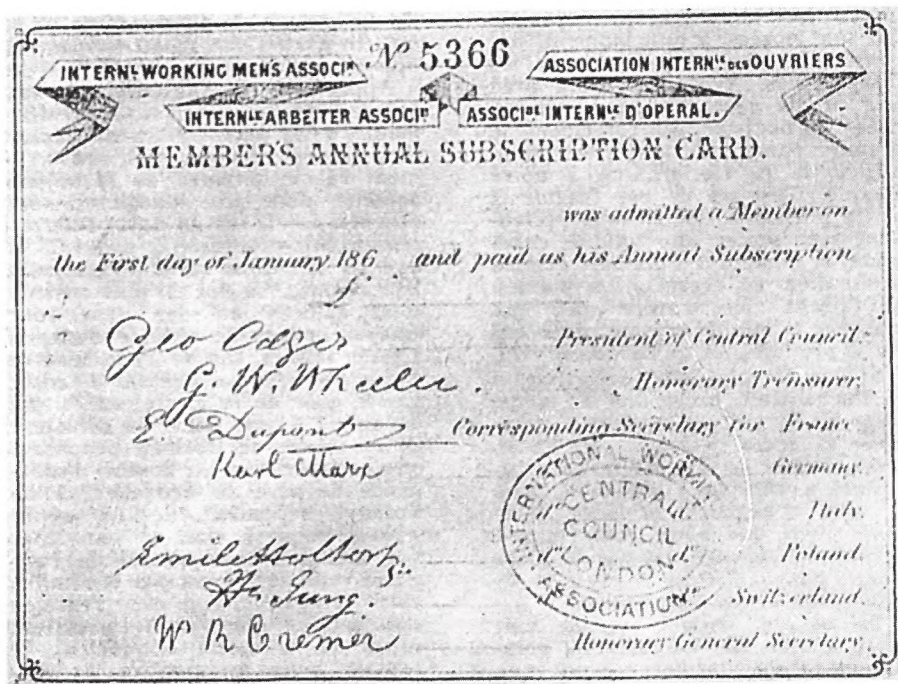 Nº 5366
INTERNL WORKING MEN'S ASSOCIN
ASSOCIATION INTERNLE DES OUVRIERS
INTERNLE ARBEITER ASSOCIN
ASSOCINE INTERNLE D'OPERAI.
MEMBER'S ANNUAL SUBSCRIPTION CARD.
was admitted a Member on
the First day of January 186 and paid as his Annual Subscription
£
Geo Odger President of Central Council.
G. W. Wheeler. Honorary Treasurer,
E Dupont Corresponding Secretary for France
Karl Marx Germany.
Italy.
Poland.
H. Jung. Switzerland.
W R Cremer Honorary General Secretary.
INTERNATIONAL WORKING
CENTRAL
COUNCIL
LONDON
ASSOCIATION